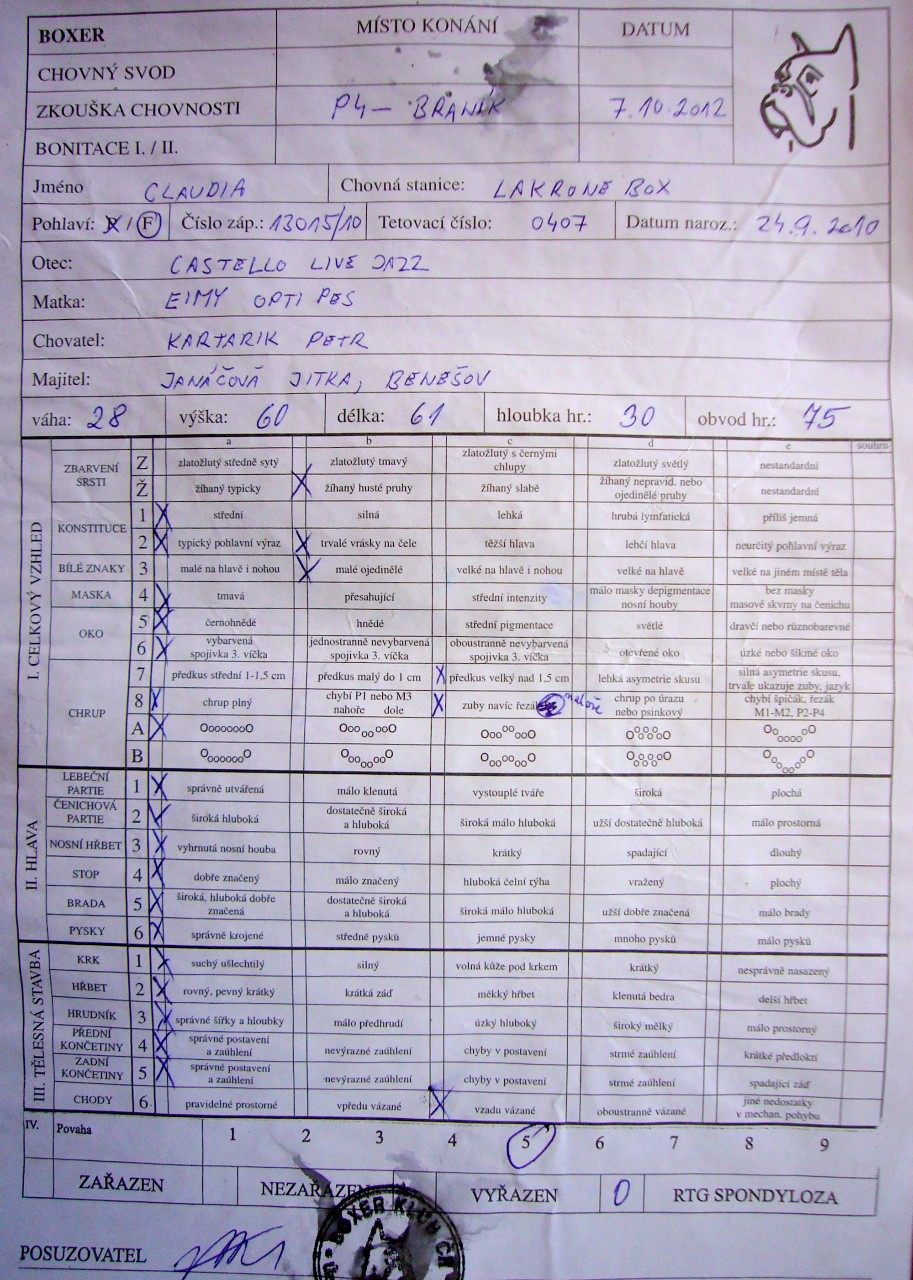 BOXER MÍSTO KONÁNÍ DATUM
CHOVNÝ SVOD
ZKOUŠKA CHOVNOSTI P4 - BRANÍK 7.10.2012
BONITACE I. / II.
Jméno CLAUDIA Chovná stanice: LAKRONE BOX
Pohlaví: / F Číslo záp.: 13015/10 Tetovací číslo: 0407 Datum naroz.: 24.9.2010
Otec: CASTELLO LIVE JAZZ
Matka: EIMY OPTI PES
Chovatel: KARTARIK PETR
Majitel: JANÁČOVÁ JITKA, BENEŠOV
váha: 28 výška: 60 délka: 61 hloubka hr.: 30 obvod hr.: 75
a b c d e souhrn
I. CELKOVÝ VZHLED
ZBARVENÍ SRSTI Z zlatožlutý středně sytý zlatožlutý tmavý zlatožlutý s černými chlupy zlatožlutý světlý nestandardní
Ž žíhaný typicky X žíhaný husté pruhy žíhaný slabě žíhaný nepravid. nebo ojedinělé pruhy nestandardní
KONSTITUCE 1 X střední silná lehká hrubá lymfatická příliš jemná
2 X typický pohlavní výraz X trvalé vrásky na čele těžší hlava lehčí hlava neurčitý pohlavní výraz
BÍLÉ ZNAKY 3 malé na hlavě i nohou X malé ojedinělé velké na hlavě i nohou velké na hlavě velké na jiném místě těla
MASKA 4 X tmavá přesahující střední intenzity málo masky depigmentace nosní houby bez masky masové skvrny na čenichu
OKO 5 X černohnědé hnědé střední pigmentace světlé dravčí nebo různobarevné
6 X vybarvená spojivka 3. víčka jednostranně nevybarvená spojivka 3. víčka oboustranně nevybarvená spojivka 3. víčka otevřené oko úzké nebo šikmé oko
CHRUP 7 předkus střední 1-1,5 cm předkus malý do 1 cm X předkus velký nad 1,5 cm lehká asymetrie skusu silná asymetrie skusu, trvale ukazuje zuby, jazyk
8 X chrup plný chybí P1 nebo M3 nahoře dole X zuby navíc řezák chrup po úrazu nebo psinkový chybí špičák, řezák M1-M2, P2-P4
A X OooooooO OoooooO OoooooO OooooO OooooooO
B OooooooO OoooooO OoooooO OooooO OooooooO
II. HLAVA
LEBEČNÍ PARTIE 1 X správně utvářená málo klenutá vystouplé tváře široká plochá
ČENICHOVÁ PARTIE 2 X široká hluboká dostatečně široká a hluboká široká málo hluboká užší dostatečně hluboká málo prostorná
NOSNÍ HŘBET 3 X vyhrnutá nosní houba rovný krátký spadající dlouhý
STOP 4 X dobře značený málo značený hluboká čelní rýha vražený plochý
BRADA 5 X široká, hluboká dobře značená dostatečně široká a hluboká široká málo hluboká užší dobře značená málo brady
PYSKY 6 X správně krojené středně pysků jemné pysky mnoho pysků málo pysků
III. TĚLESNÁ STAVBA
KRK 1 X suchý ušlechtilý silný volná kůže pod krkem krátký nesprávně nasazený
HŘBET 2 X rovný, pevný krátký krátká záď měkký hřbet klenutá bedra delší hřbet
HRUDNÍK 3 X správné šířky a hloubky málo předhrudí úzký hluboký široký mělký málo prostorný
PŘEDNÍ KONČETINY 4 X správné postavení a zaúhlení nevýrazné zaúhlení chyby v postavení strmé zaúhlení krátké předloktí
ZADNÍ KONČETINY 5 X správné postavení a zaúhlení nevýrazné zaúhlení chyby v postavení strmé zaúhlení spadající záď
CHODY 6 pravidelné prostorné vpředu vázané X vzadu vázané oboustranně vázané jiné nedostatky v mechan. pohybu
IV. Povaha 1 2 3 4 5 6 7 8 9
ZAŘAZEN NEZAŘAZEN VYŘAZEN 0 RTG SPONDYLOZA
POSUZOVATEL
BOXER KLUB ČR